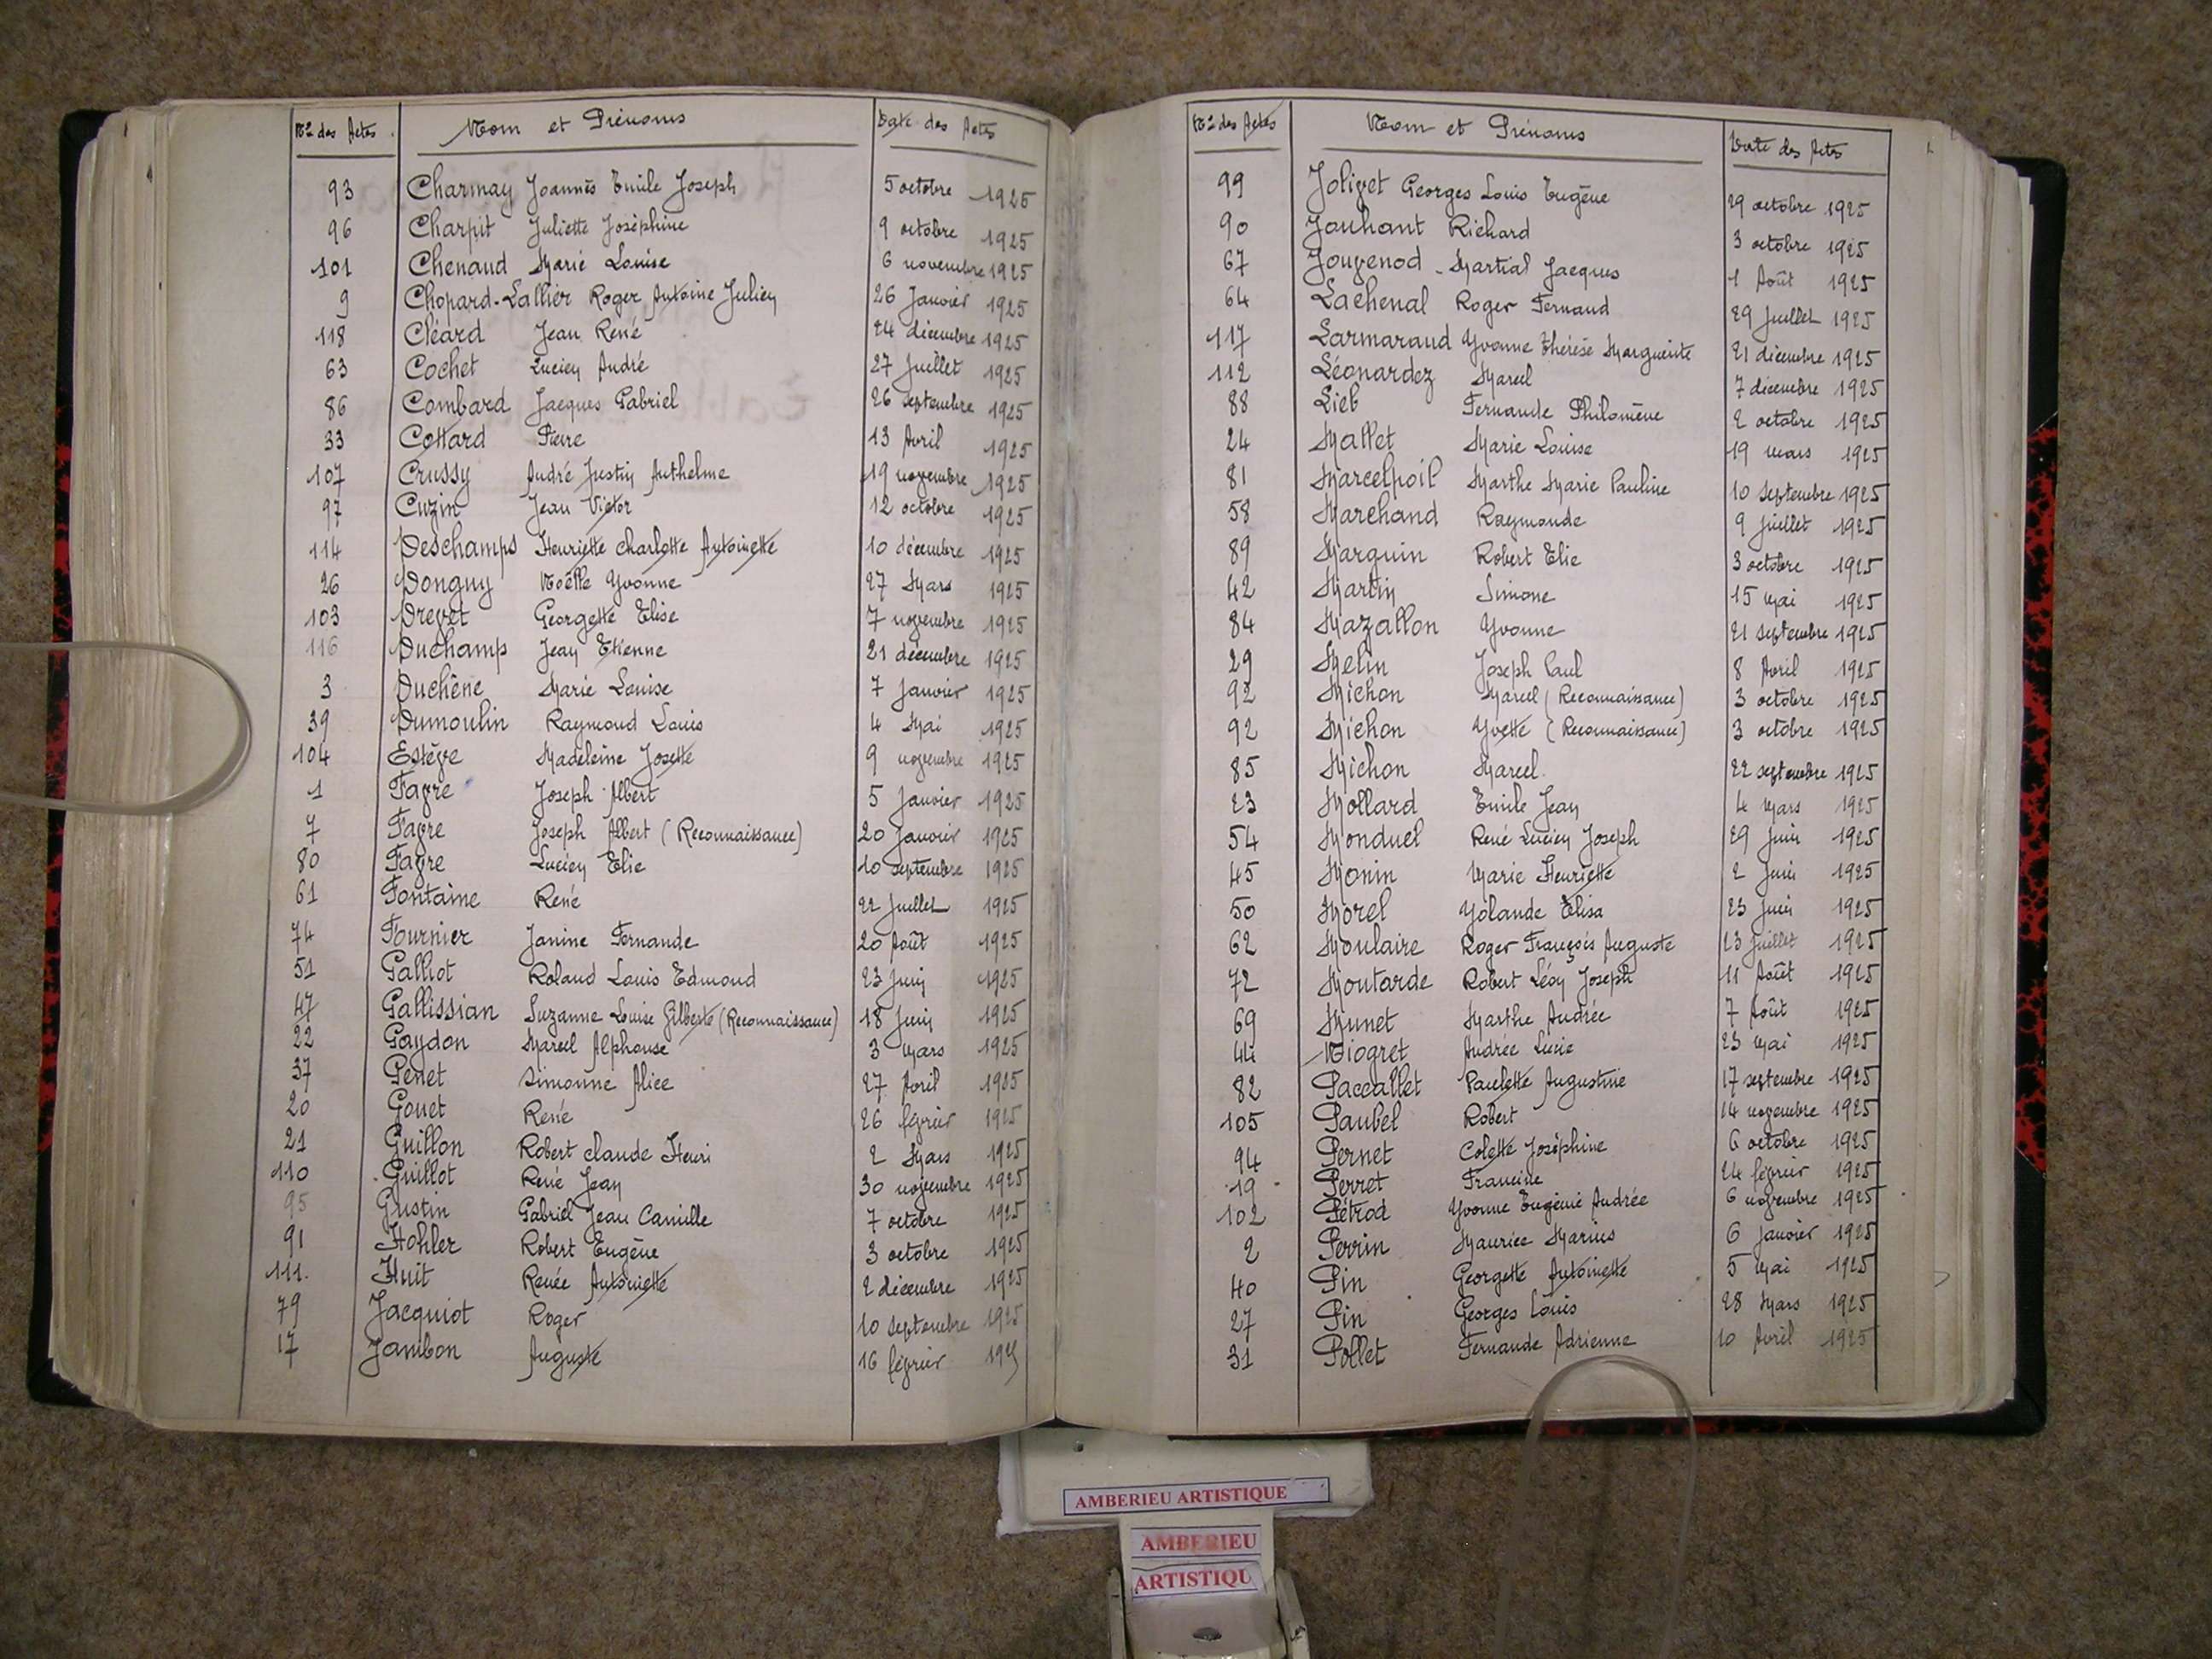 Nos des Actes Nom et Prénoms Date des Actes
93 Charmay Joannès Emile Joseph 5 octobre 1925
96 Charpit Juliette Joséphine 9 octobre 1925
101 Chenaud Marie Louise 6 novembre 1925
9 Chopard-Lallier Roger Antoine Julien 26 Janvier 1925
118 Cléard Jean René 24 décembre 1925
63 Cochet Lucien André 27 Juillet 1925
86 Combard Jacques Gabriel 26 septembre 1925
33 Cottard Pierre 13 Avril 1925
107 Crussy André Justin Anthelme 19 novembre 1925
97 Cuzin Jean Victor 12 octobre 1925
114 Deschamps Henriette Charlotte Antoinette 10 décembre 1925
26 Donguy Noëlle Yvonne 27 Mars 1925
103 Drevet Georgette Elise 7 novembre 1925
116 Duchamp Jean Etienne 21 décembre 1925
3 Duchêne Marie Louise 7 Janvier 1925
39 Dumoulin Raymond Louis 4 Mai 1925
104 Estève Madeleine Josette 9 novembre 1925
1 Favre Joseph Albert 5 Janvier 1925
7 Favre Joseph Albert (Reconnaissance) 20 Janvier 1925
80 Favre Lucien Elie 10 septembre 1925
61 Fontaine René 22 Juillet 1925
74 Fournier Janine Fernande 20 Août 1925
51 Galliot Roland Louis Edmond 23 Juin 1925
47 Gallissian Suzanne Louise Gilberte (Reconnaissance) 18 Juin 1925
22 Gaydon Marcel Alphonse 3 Mars 1925
37 Genet Simonne Alice 27 Avril 1925
20 Gouet René 26 février 1925
21 Guillon Robert Claude Henri 2 Mars 1925
110 Guillot René Jean 30 novembre 1925
95 Gustin Gabriel Jean Camille 7 octobre 1925
91 Hohler Robert Eugène 3 octobre 1925
111 Huit Renée Antoinette 2 décembre 1925
79 Jacquiot Roger 10 septembre 1925
17 Jambon Auguste 16 février 1925
Nos des Actes Nom et Prénoms Date des Actes
99 Jolivet Georges Louis Eugène 29 octobre 1925
90 Jouhant Richard 3 octobre 1925
67 Jouvenod Martial Jacques 1 Août 1925
64 Lachenal Roger Fernand 29 Juillet 1925
117 Larmaraud Yvonne Thérèse Marguerite 21 décembre 1925
112 Léonardez Marcel 7 décembre 1925
88 Lieb Fernande Philomène 2 octobre 1925
24 Mallet Marie Louise 19 mars 1925
81 Marcelpoil Marthe Marie Pauline 10 septembre 1925
58 Marchand Raymonde 9 Juillet 1925
89 Marguin Robert Elie 3 octobre 1925
42 Martin Simone 15 Mai 1925
84 Mazallon Yvonne 21 septembre 1925
29 Melin Joseph Paul 8 Avril 1925
92 Michon Marcel (Reconnaissance) 3 octobre 1925
92 Michon Yvette (Reconnaissance) 3 octobre 1925
85 Michon Marcel 22 septembre 1925
23 Mollard Emile Jean 4 Mars 1925
54 Monduel René Lucien Joseph 29 Juin 1925
45 Monin Marie Henriette 2 Juin 1925
50 Morel Yolande Elisa 23 Juin 1925
62 Moulaire Roger François Auguste 23 Juillet 1925
72 Moutarde Robert Léon Joseph 11 Août 1925
69 Munet Marthe Andrée 7 Août 1925
44 Niogret Andrée Lucie 23 Mai 1925
82 Paccallet Paulette Augustine 17 septembre 1925
105 Paubel Robert 14 novembre 1925
94 Pernet Colette Joséphine 6 octobre 1925
19 Perret Francine 24 février 1925
102 Pétrod Yvonne Eugénie Andrée 6 novembre 1925
2 Perrin Maurice Marius 6 Janvier 1925
40 Pin Georgette Antoinette 5 Mai 1925
27 Pin Georges Louis 28 Mars 1925
31 Pollet Fernande Adrienne 10 Avril 1925
AMBERIEU ARTISTIQUE
AMBERIEU
ARTISTIQU